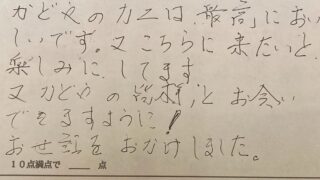 かどやのカニは、最高においしいです。又こちらに来たいと
楽しみに、してます
又かどやの
とお会い
できますように!
お世話をおかけしました。
10点満点で ___ 点